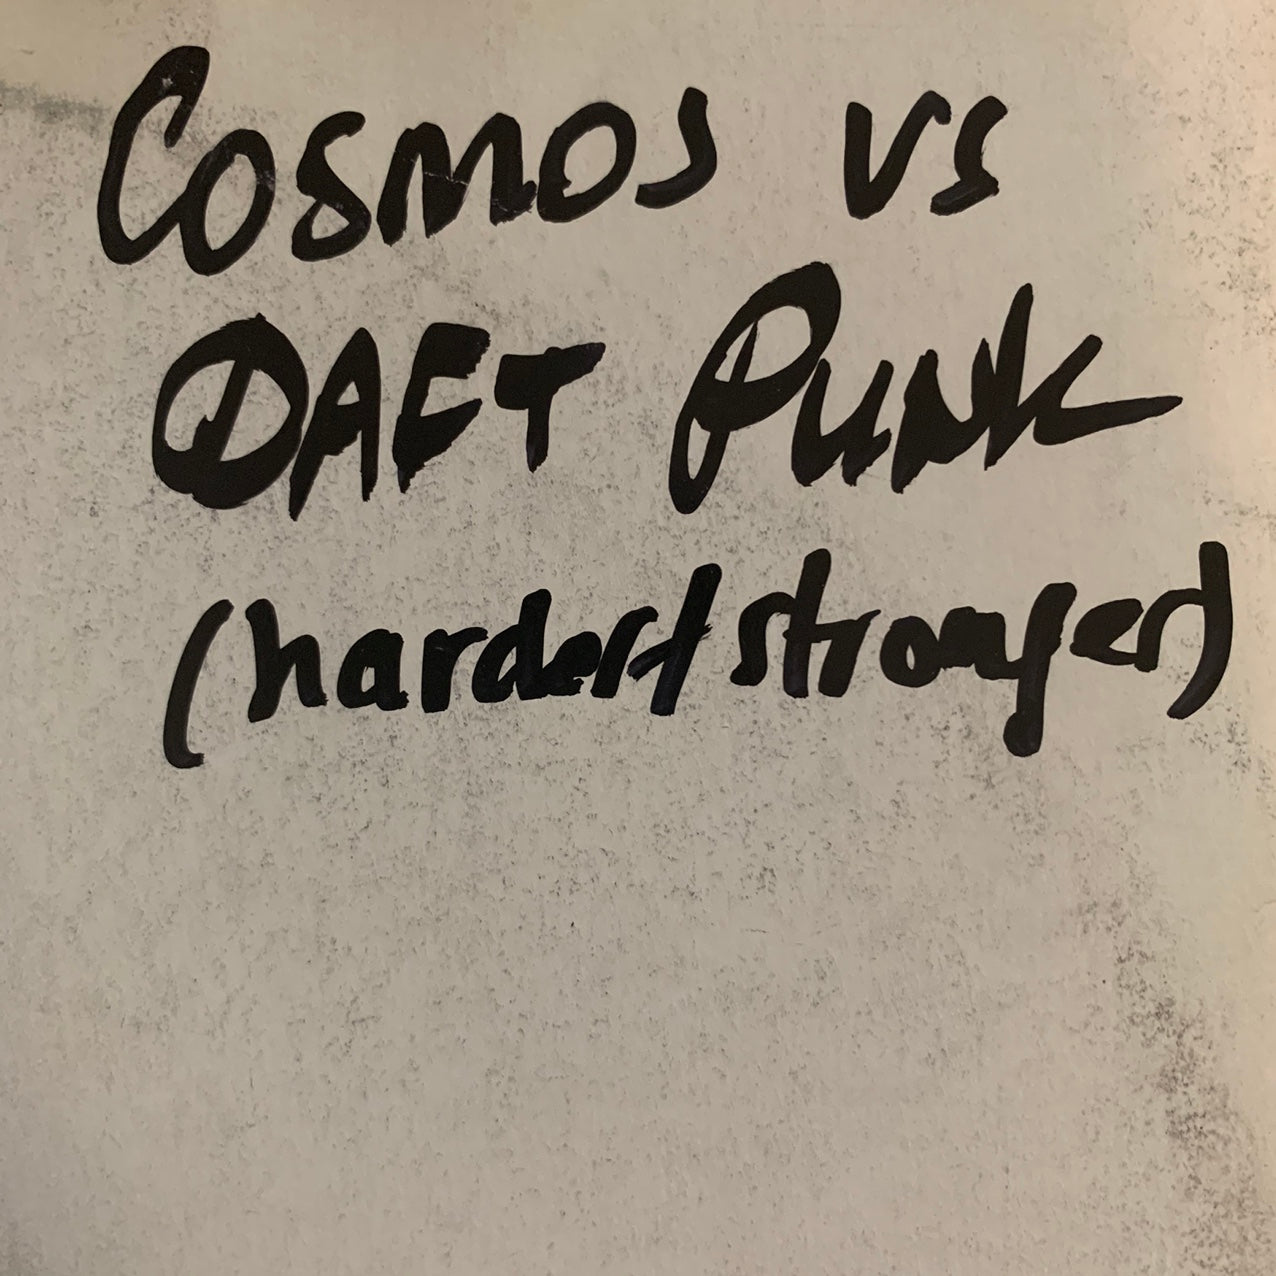 Cosmos vs
DAFT Punk
(harder/stronger)